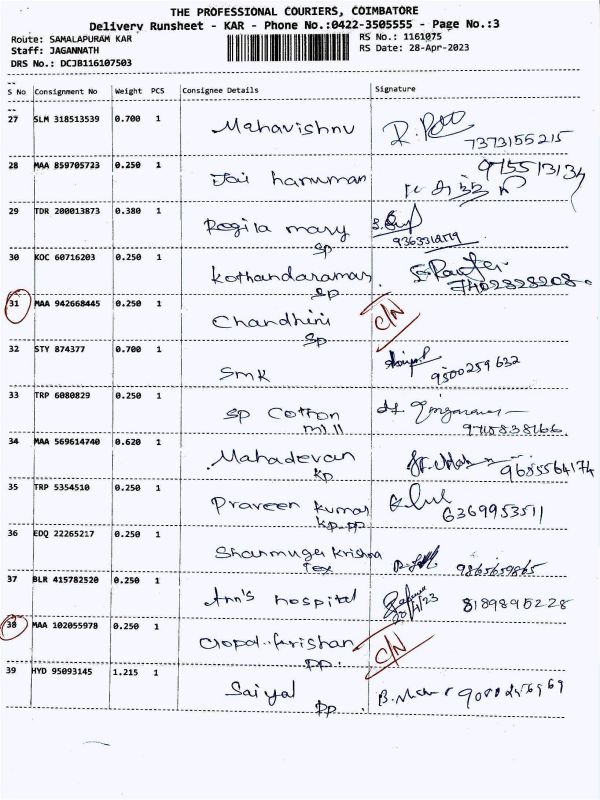 THE PROFESSIONAL COURIERS, COIMBATORE
Delivery Runsheet - KAR - Phone No.:0422-3505555 - Page No.:3
Route: SAMALAPURAM KAR RS No.: 1161075
Staff: JAGANNATH RS Date: 28-Apr-2023
DRS No.: DCJB116107503
S No Consignment No Weight PCS Consignee Details Signature
27 SLM 318513539 0.700 1 Mahavishnu
7373155215
28 MAA 859705723 0.250 1 Jai hanuman
29 TDR 200013873 0.380 1 Rogila mary
sp
30 KOC 60716203 0.250 1 Kothandaraman
sp 7402828208
31 MAA 942668445 0.250 1 Chandhini C/N
sp
32 STY 874377 0.700 1 SMK
9500259632
33 TRP 6080829 0.250 1 SP Cotton
mill
34 MAA 569614740 0.620 1 Mahadevan
kp 9685564174
35 TRP 5354510 0.250 1 Praveen kumar
kp.pp 6369953511
36 EDQ 22265217 0.250 1 Shanmuga Krishna
Tex 9865659865
37 BLR 415782520 0.250 1 Ann's hospital
8189895228
38 MAA 102055978 0.250 1 C/N
pp.
39 HYD 95093145 1.215 1 Saiyal
pp